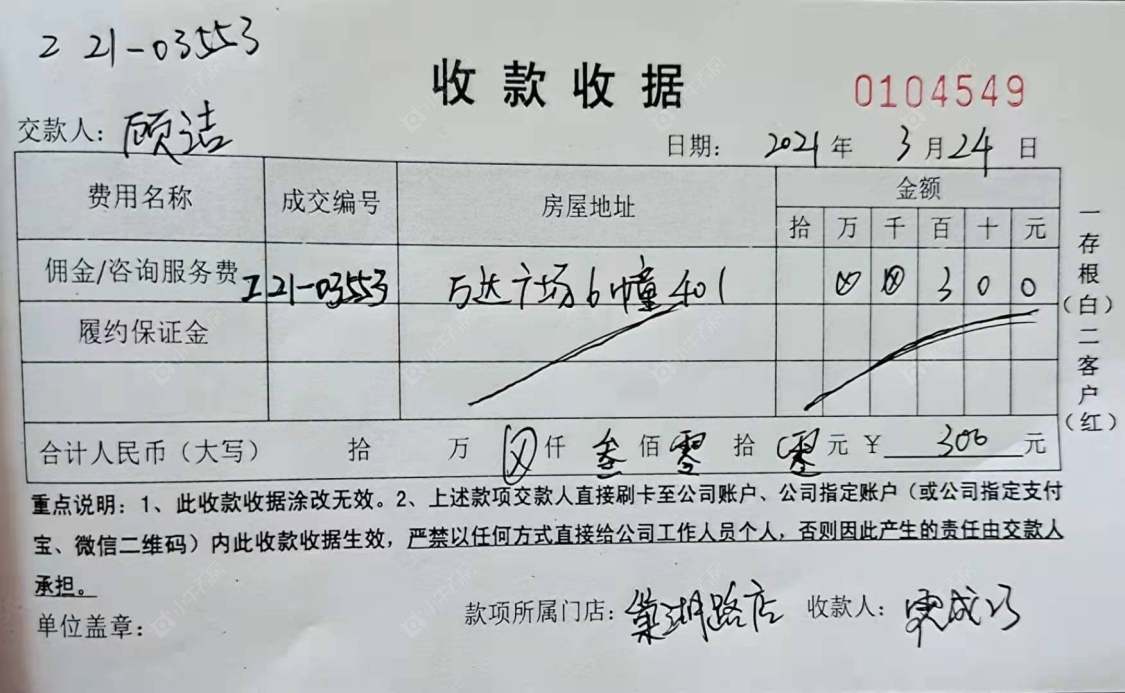 Z 21-03553
收款收据
0104549
交款人：顾洁
日期：2021年3月24日
费用名称 成交编号 房屋地址 金额
拾 万 千 百 十 元
佣金/咨询服务费 Z21-03553 万达广场6幢401 ⊗ ⊗ 3 0 0
履约保证金
合计人民币（大写） 拾 万 ⊗仟 叁佰零拾 零元 ¥300元
重点说明：1、此收款收据涂改无效。2、上述款项交款人直接刷卡至公司账户、公司指定账户（或公司指定支付
宝、微信二维码）内此收款收据生效，严禁以任何方式直接给公司工作人员个人，否则因此产生的责任由交款人
承担。
单位盖章：
款项所属门店：巢湖路店 收款人：
一存根（白）二客户（红）